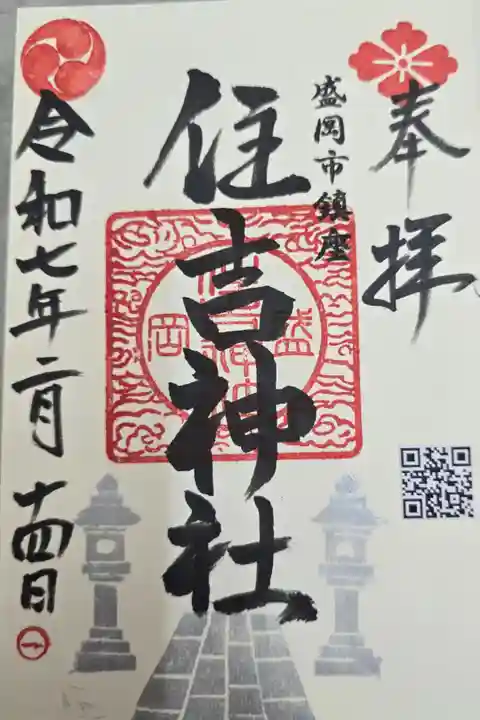 奉拝
盛岡市鎮座
住吉神社
盛岡
令和七年二月十四日
一